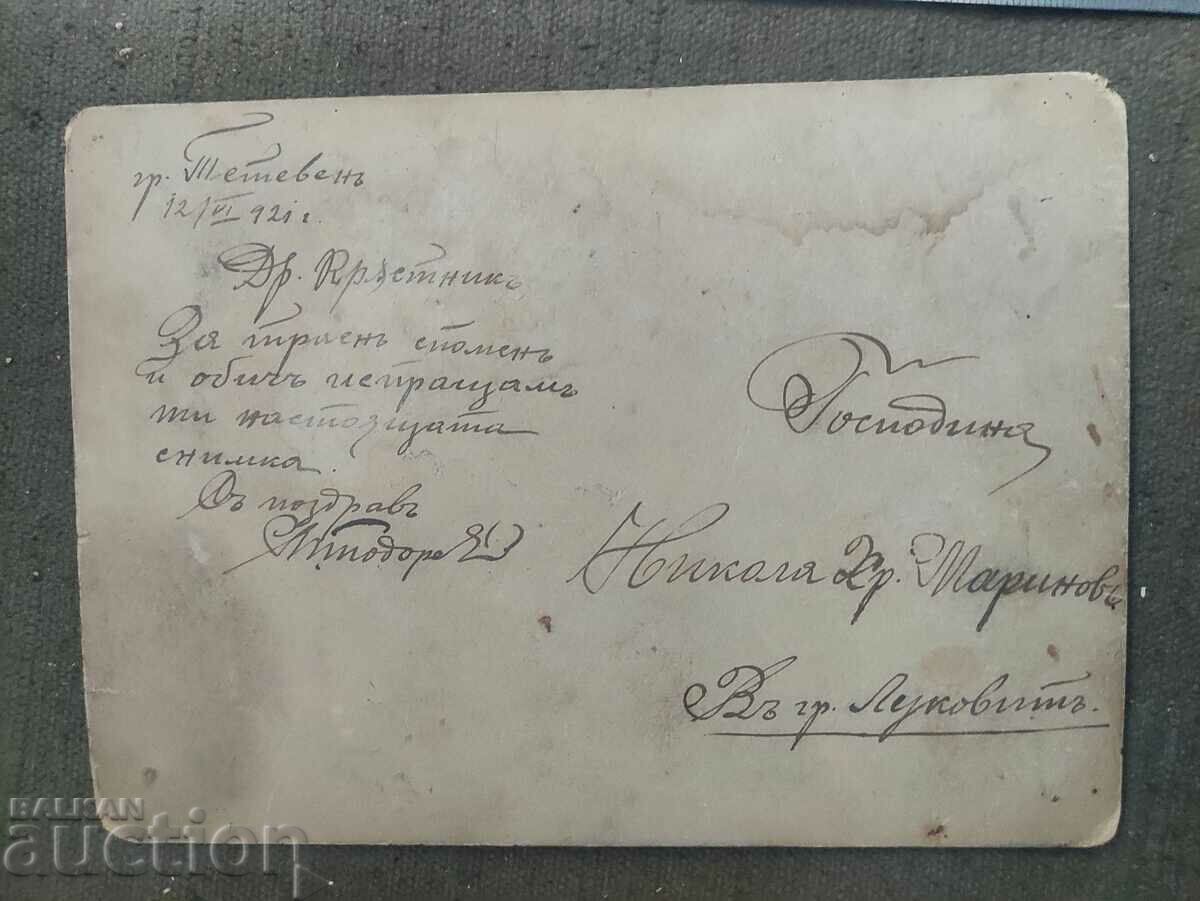 гр. Тетевенъ
12/VI 921 г.
Др. Кръстникъ
За траенъ споменъ
и обичъ испращамъ
ти настоящата
снимка.
Съ поздравъ
Господина
Никола Хр. Мариновъ
Въ гр. Луковитъ.
BALKAN
auction